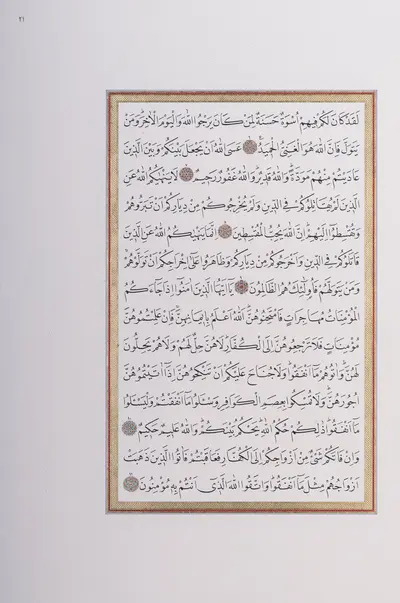 ٢١
لَقَدْ كَانَ لَكُمْ فِيهِمْ اُسْوَةٌ حَسَنَةٌ لِمَنْ كَانَ يَرْجُوا اللّٰهَ وَالْيَوْمَ الْاٰخِرَ وَمَنْ
يَتَوَلَّ فَاِنَّ اللّٰهَ هُوَ الْغَنِىُّ الْحَمِيدُ عَسَى اللّٰهُ اَنْ يَجْعَلَ بَيْنَكُمْ وَبَيْنَ الَّذِينَ
عَادَيْتُمْ مِنْهُمْ مَوَدَّةً وَاللّٰهُ قَدِيرٌ وَاللّٰهُ غَفُورٌ رَحِيمٌ لَا يَنْهٰيكُمُ اللّٰهُ عَنِ
الَّذِينَ لَمْ يُقَاتِلُوكُمْ فِى الدِّينِ وَلَمْ يُخْرِجُوكُمْ مِنْ دِيَارِكُمْ اَنْ تَبَرُّوهُمْ
وَتُقْسِطُوا اِلَيْهِمْ اِنَّ اللّٰهَ يُحِبُّ الْمُقْسِطِينَ اِنَّمَا يَنْهٰيكُمُ اللّٰهُ عَنِ الَّذِينَ
قَاتَلُوكُمْ فِى الدِّينِ وَاَخْرَجُوكُمْ مِنْ دِيَارِكُمْ وَظَاهَرُوا عَلٰى اِخْرَاجِكُمْ اَنْ تَوَلَّوْهُمْ
وَمَنْ يَتَوَلَّهُمْ فَاُولٰئِكَ هُمُ الظَّالِمُونَ يَا اَيُّهَا الَّذِينَ اٰمَنُوا اِذَا جَاءَكُمُ
الْمُؤْمِنَاتُ مُهَاجِرَاتٍ فَامْتَحِنُوهُنَّ اَللّٰهُ اَعْلَمُ بِاِيمَانِهِنَّ فَاِنْ عَلِمْتُمُوهُنَّ
مُؤْمِنَاتٍ فَلَا تَرْجِعُوهُنَّ اِلَى الْكُفَّارِ لَا هُنَّ حِلٌّ لَهُمْ وَلَا هُمْ يَحِلُّونَ
لَهُنَّ وَاٰتُوهُمْ مَا اَنْفَقُوا وَلَا جُنَاحَ عَلَيْكُمْ اَنْ تَنْكِحُوهُنَّ اِذَا اٰتَيْتُمُوهُنَّ
اُجُورَهُنَّ وَلَا تُمْسِكُوا بِعِصَمِ الْكَوَافِرِ وَسْـَٔلُوا مَا اَنْفَقْتُمْ وَلْيَسْـَٔلُوا
مَا اَنْفَقُوا ذٰلِكُمْ حُكْمُ اللّٰهِ يَحْكُمُ بَيْنَكُمْ وَاللّٰهُ عَلِيمٌ حَكِيمٌ
وَاِنْ فَاتَكُمْ شَىْءٌ مِنْ اَزْوَاجِكُمْ اِلَى الْكُفَّارِ فَعَاقَبْتُمْ فَاٰتُوا الَّذِينَ ذَهَبَتْ
اَزْوَاجُهُمْ مِثْلَ مَا اَنْفَقُوا وَاتَّقُوا اللّٰهَ الَّذِى اَنْتُمْ بِهِ مُؤْمِنُونَ